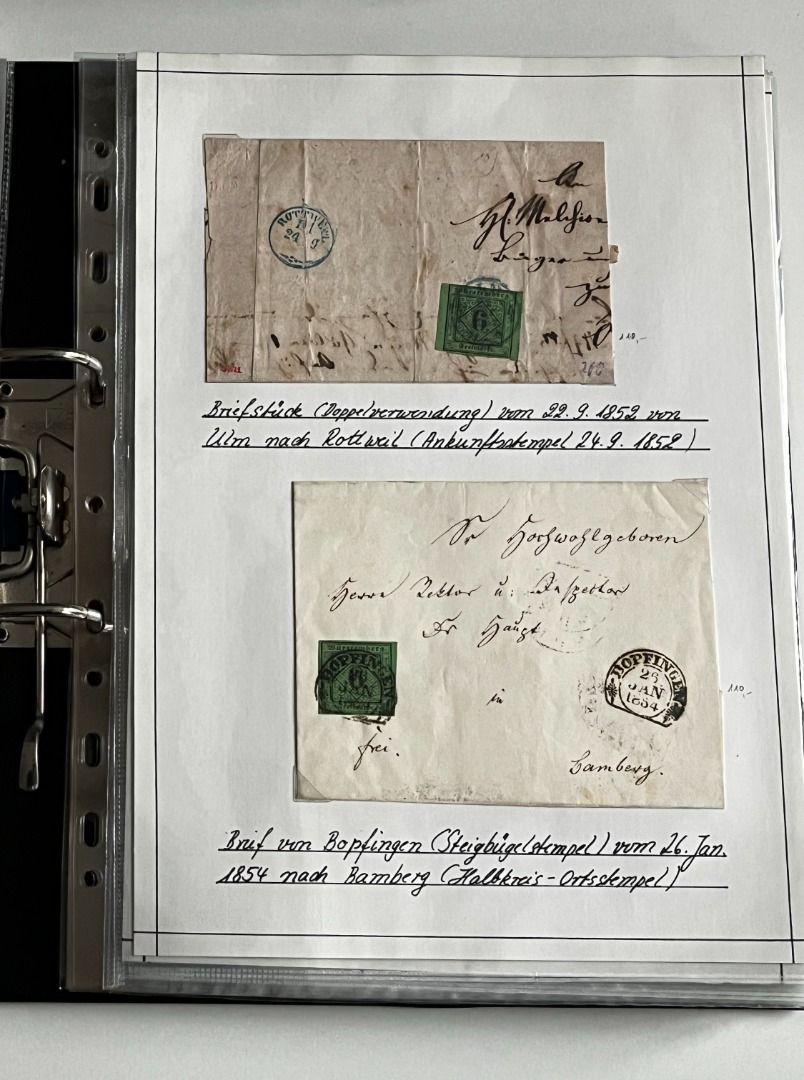 ROTTWEIL
24 9
An
H. Melchior
Bürger u
zu
Württemberg
6
Kreuzer.
110,-
200
Briefstück (Doppelverwendung) vom 22.9.1852 von
Ulm nach Rottweil (Ankunftsstempel 24.9.1852)
Sr Hochwohlgeboren
Herrn Rektor u: Inspector
Dr Haupt
Württemberg
BOPFINGEN
JAN
in
BOPFINGEN
26
JAN
1854
110,-
frei.
Bamberg.
Brief von Bopfingen (Steigbügelstempel) vom 26. Jan.
1854 nach Bamberg (Halbkreis-Ortsstempel)